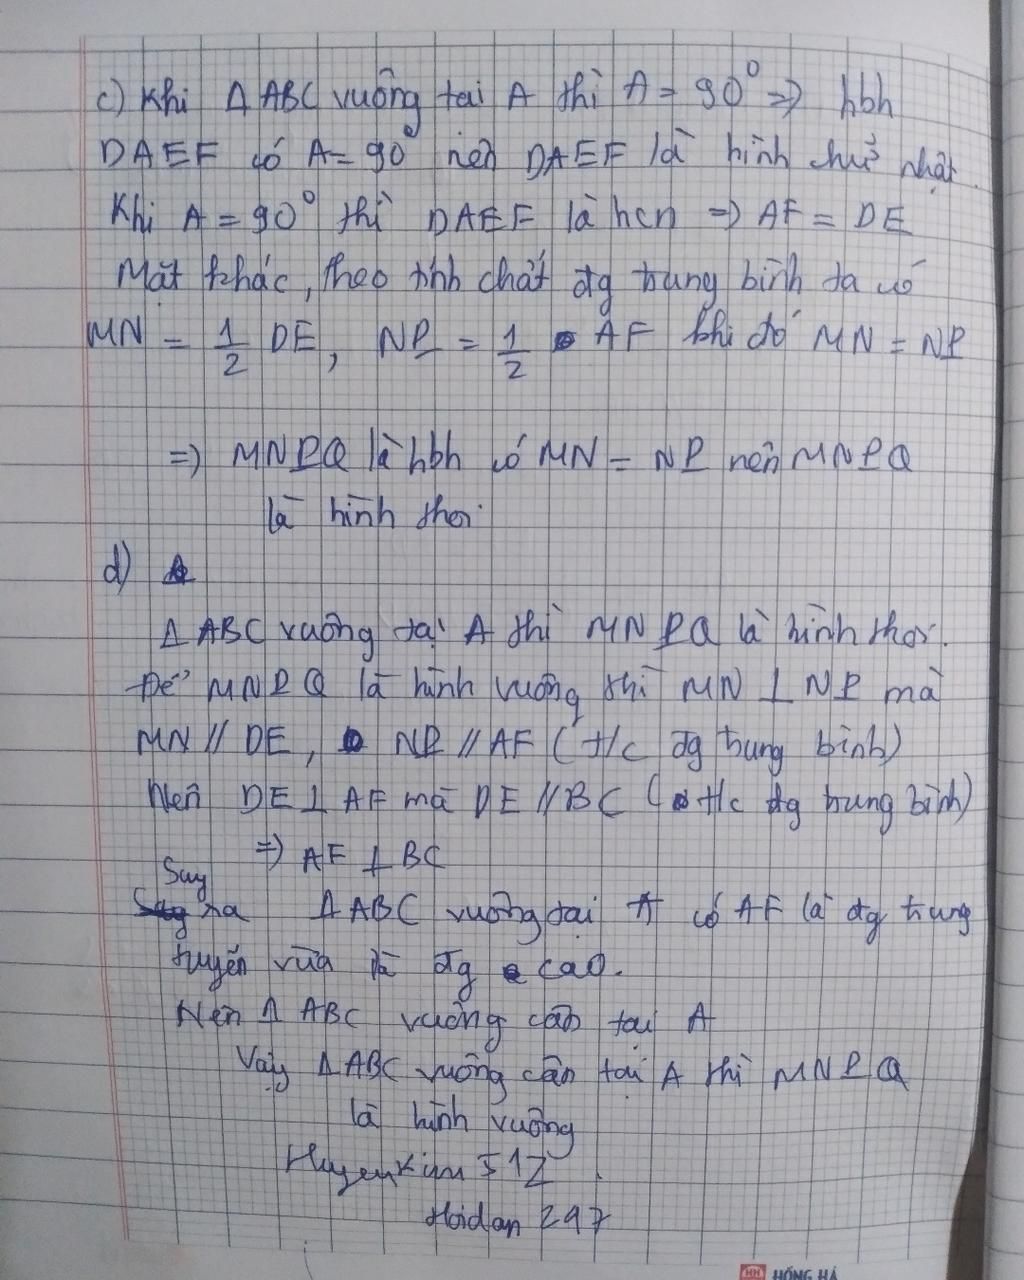 c) Khi Δ ABC vuông tại A thì A = 90° => hbh
DAEF có A = 90° nên DAEF là hình chữ nhật.
Khi A = 90° thì DAEF là hcn => AF = DE
Mặt khác, theo tính chất đg trung bình ta có
MN = 1/2 DE, NP = 1/2 AF khi đó MN = NP
=> MNPQ là hbh có MN = NP nên MNPQ
là hình thoi.
d)
Δ ABC vuông tại A thì MNPQ là hình thoi.
Để MNPQ là hình vuông thì MN ⊥ NP mà
MN // DE, NP // AF (t/c đg trung bình)
Nên DE ⊥ AF mà DE // BC (t/c đg trung bình)
=> AF ⊥ BC
Suy ra Δ ABC vuông tại A có AF là đg trung
tuyến vừa là đg cao.
Nên Δ ABC vuông cân tại A
Vậy Δ ABC vuông cân tại A thì MNPQ
là hình vuông
Hoidan 247
HỒNG HÀ